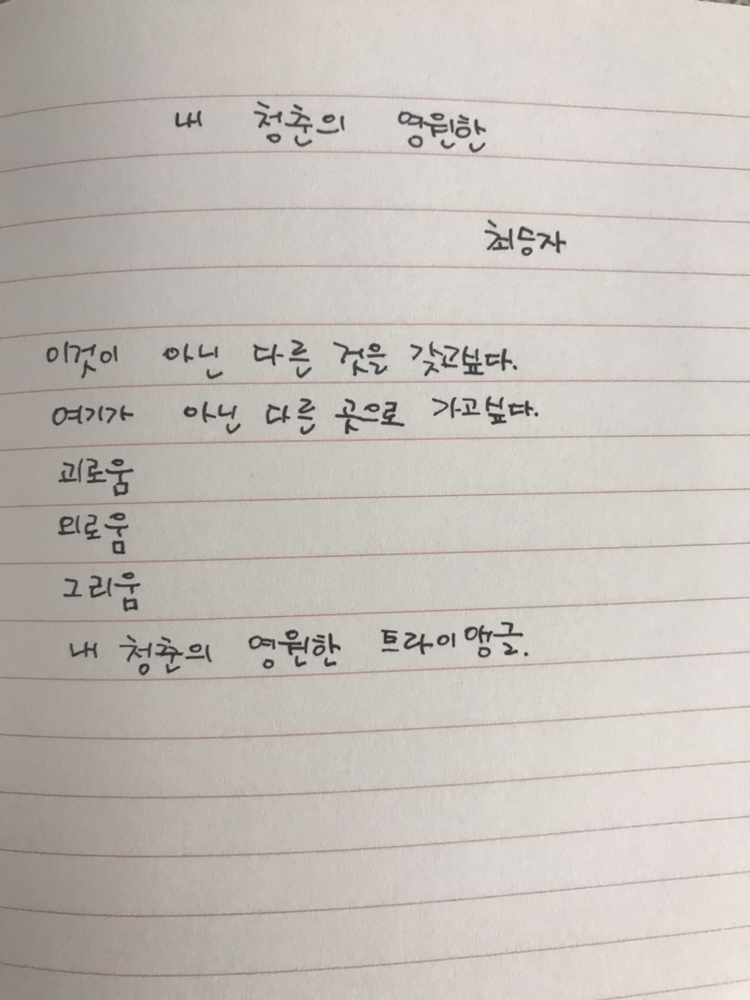 내 청춘의 영원한
최승자
이것이 아닌 다른 것을 갖고싶다.
여기가 아닌 다른 곳으로 가고싶다.
괴로움
외로움
그리움
내 청춘의 영원한 트라이앵글.